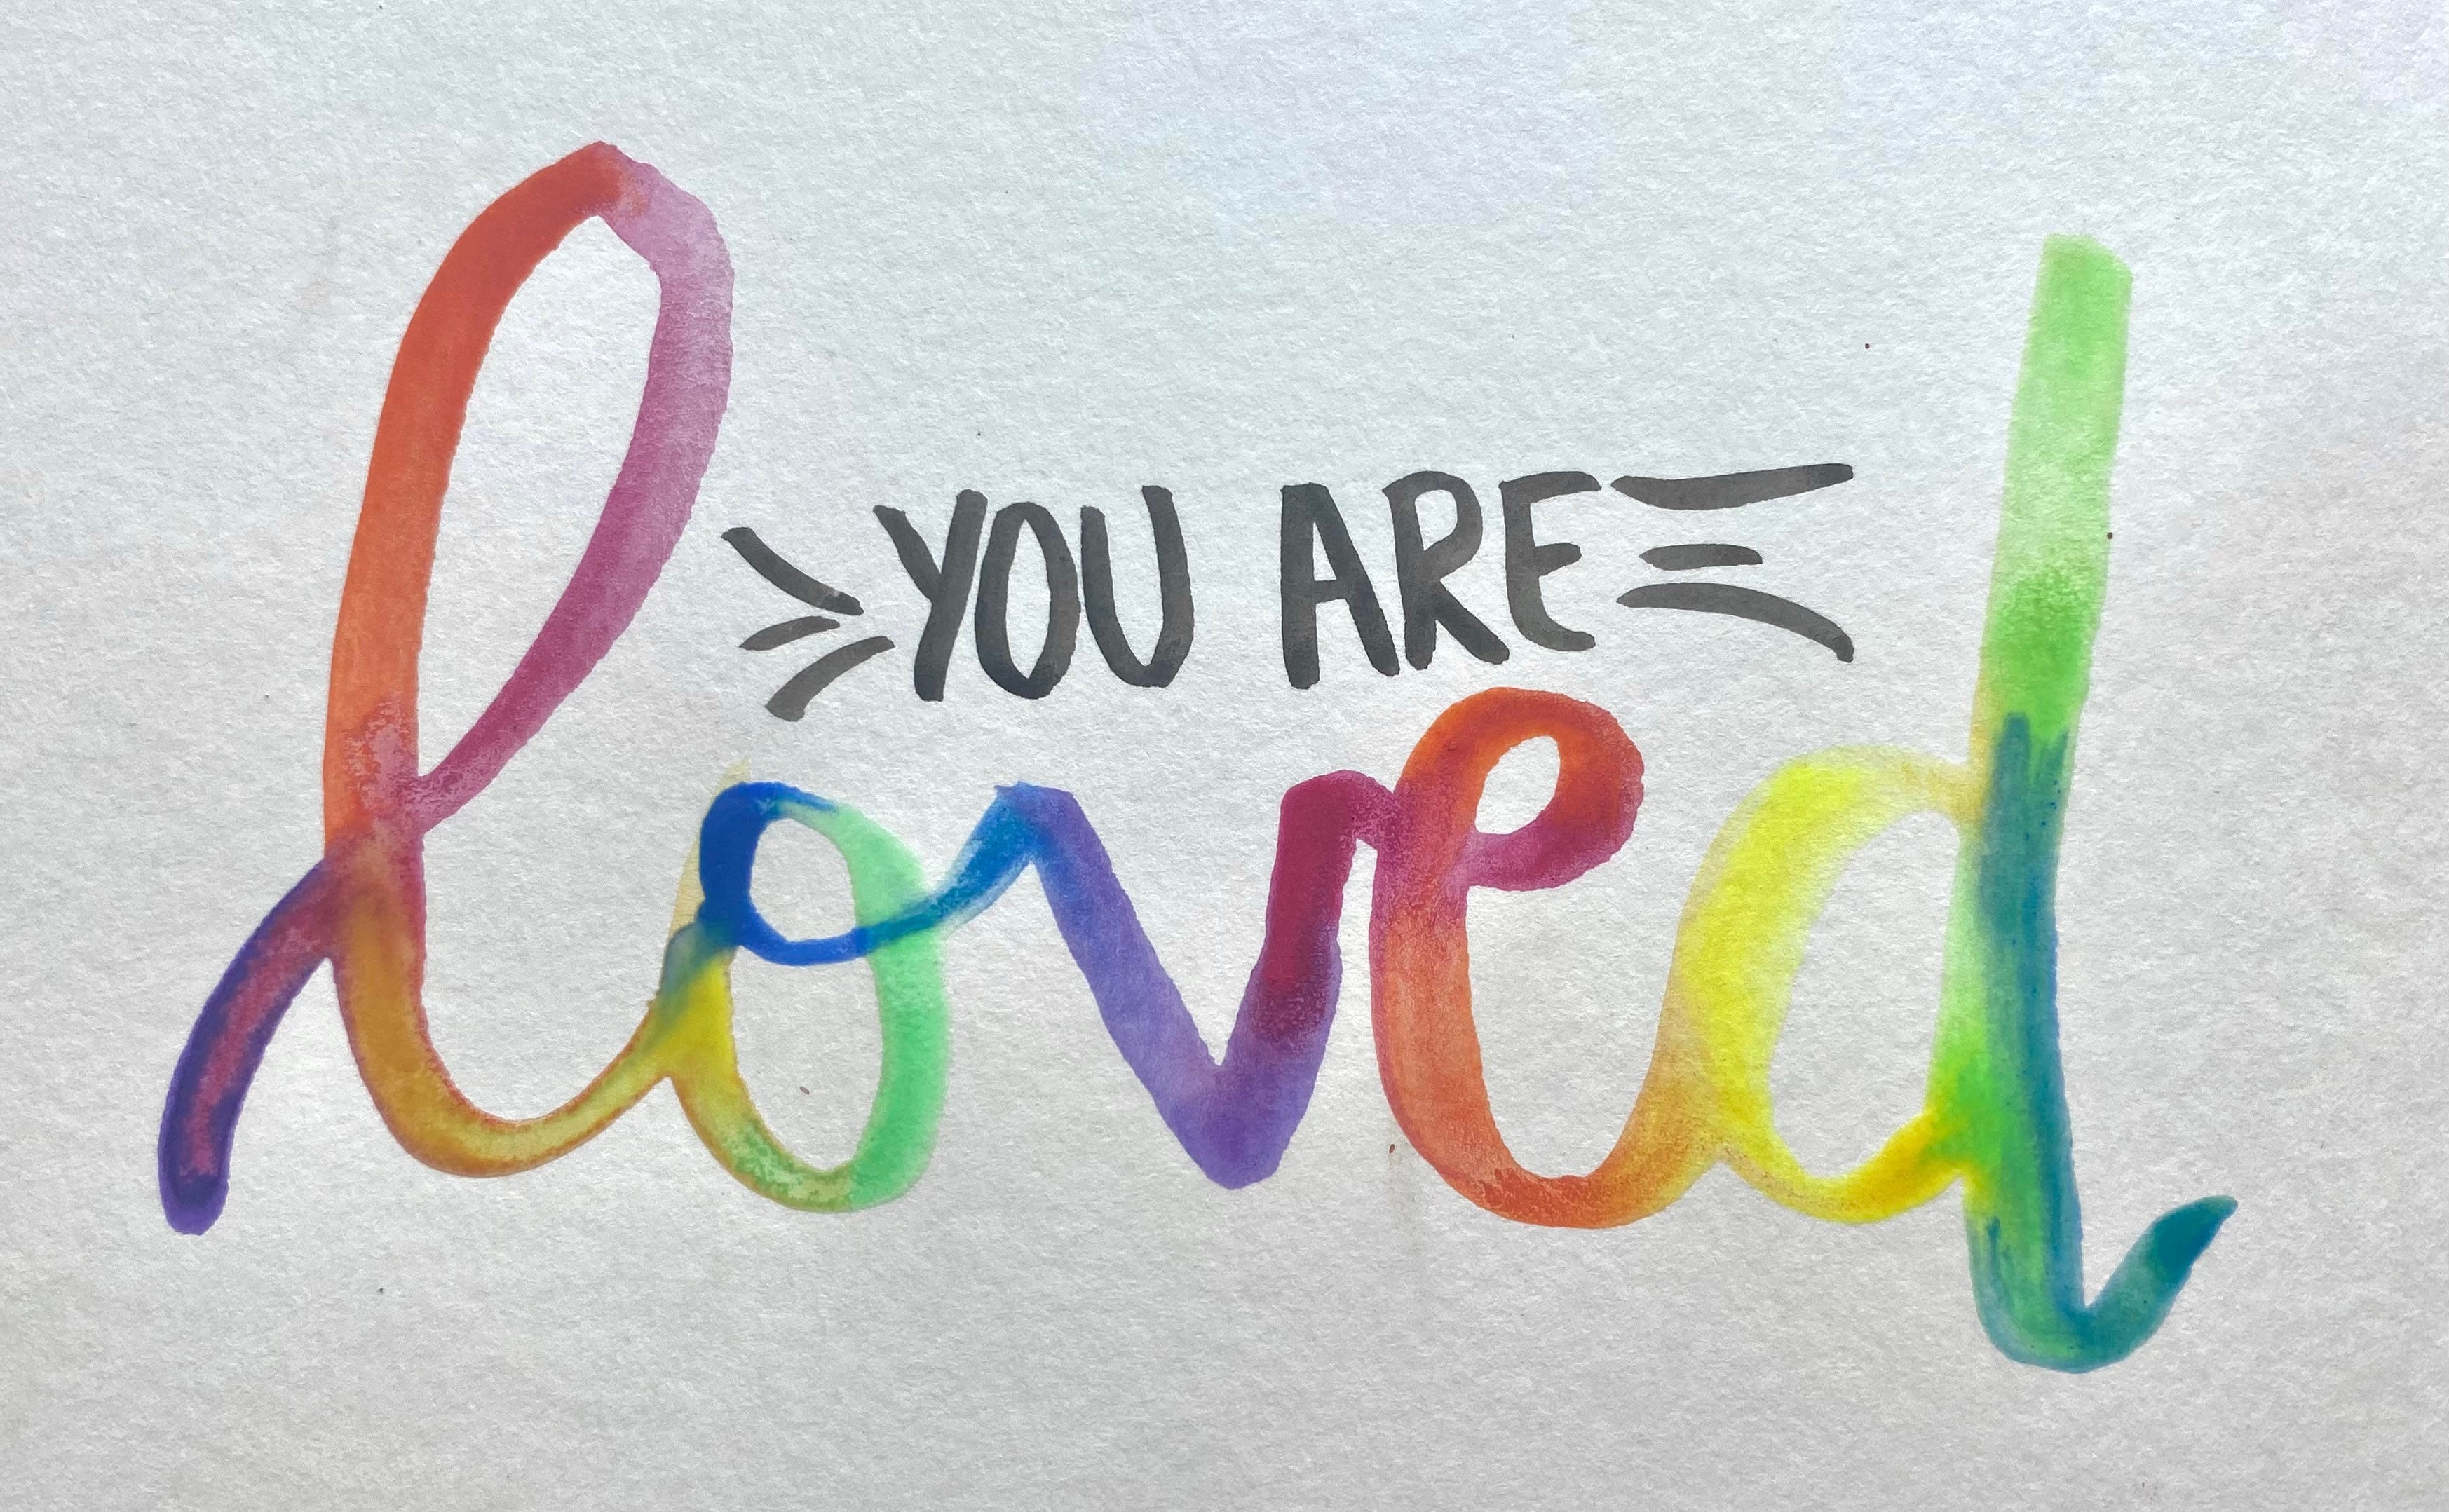 YOU ARE
loved